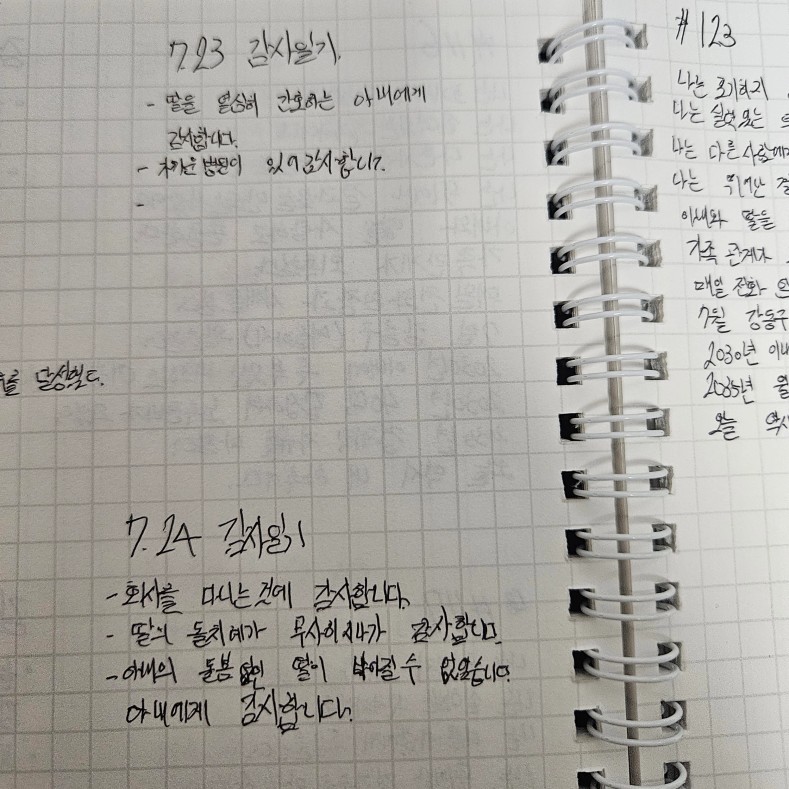 7.23 감사일기.
- 딸을 열심히 간호하는 아내에게
감사합니다.
- 가까운 병원이 있어 감사합니다.
-
를 달성했다.
7.24 감사일기
- 회사를 다니는 것에 감사합니다.
- 딸의 돌치레가 무사히 지나가 감사합니다.
- 아내의 돌봄 없인 딸이 나아질 수 없었습니다.
아내에게 감사합니다.
#123
나는 포기하지
나는 쓸모있는
나는 다른 사람에게
나는 뛰어난
아내와 딸을
가족 관계가
매일 전화
7월 강동구
2030년 이내
2035년 월
오늘 역시